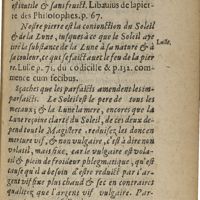 est inutile & sans fruict. Libauius de lapier-
re des Philosophes. p. 67.
Nostre pierre est la conionction du Soleil
& de la Lune, iusques à ce que le Soleil aye
tiré la substance de la Lune à sa nature & à
Lulle.
sa couleur, ce qui se faict auec le feu de la pier
re Lulle p. 71. du codicille & p. 131. com-
mence cum fecibus.
Sçaches que les parfaicts amendent les im-
parfaicts. Le Soleil est le pere de tous les
metaux; & la Lune la mere, encores que la
Lune reçoiue clarté du Soleil, de ces deux de-
pend tout le Magistere. reduisez les donc en
mercure vif, & non vulgaire, c'est à dire non
volatil, mais fixe, car le vulgaire est vola-
til & plein de froideur phlegmatique, qui est
cause qu'il a besoin d'estre reduict par l'ar-
gent vif fixe plus chaud & sec en contraires
qualitez, que l'argent vif vulgaire. Par-